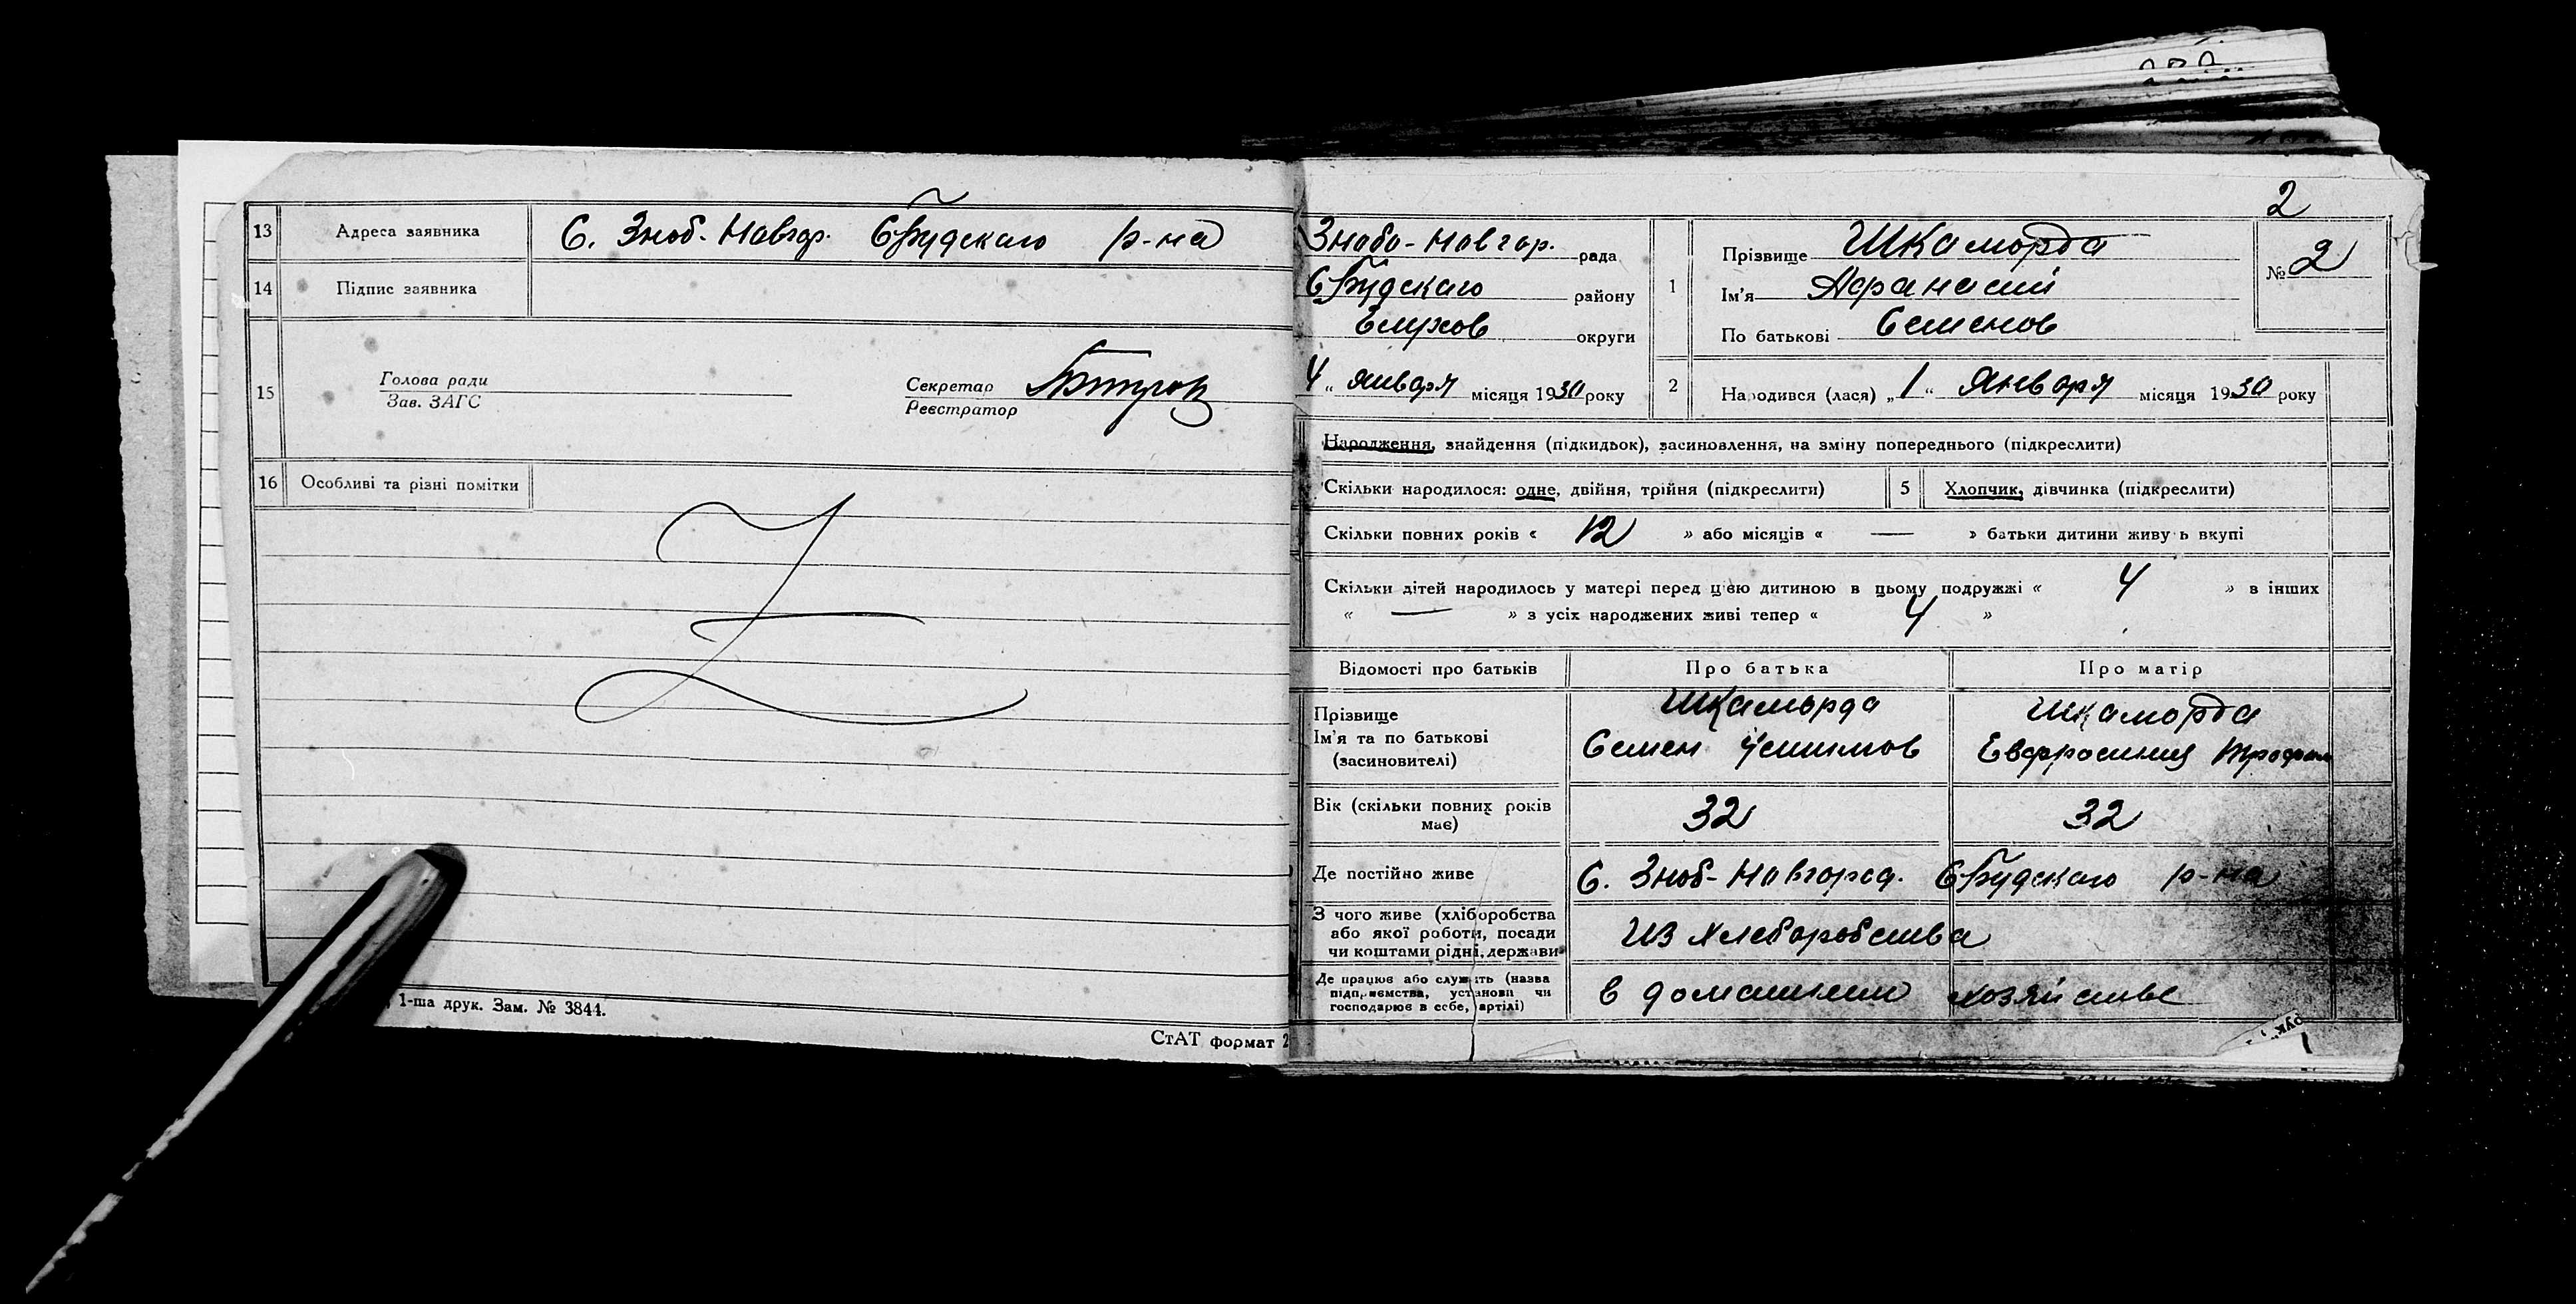 13 Адреса заявника С. Зноб-Новгор. СБудского р-на
14 Підпис заявника
15 Голова ради
Зав. ЗАГС
Секретар
Реєстратор
16 Особливі та різні помітки
1-ша друк. Зам. № 3844.
СтАТ формат 2
2
Знобо-Новгор. рада
СБудского району
Глухов округи
4 „ января місяця 1930 року
1 Прізвище Шкаморда
Ім'я Афанасий
По батькові Семенов
№ 2
2 Народився (лася) „ 1 “ Января місяця 1930 року
Народження, знайдення (підкидьок), засиновлення, на зміну попереднього (підкреслити)
Скільки народилося: одне, двійня, трійня (підкреслити) 5 Хлопчик, дівчинка (підкреслити)
Скільки повних років « 12 » або місяців « — » батьки дитини живу ь вкупі
Скільки дітей народилось у матері перед цією дитиною в цьому подружжі « 4 » в інших
« — » з усіх народжених живі тепер « 4 »
Відомості про батьків Про батька Про матір
Прізвище
Ім'я та по батькові
(засиновителі)
Шкаморда
Семен
Шкаморда
Евфросиния Трофим
Вік (скільки повних років
має)
32 32
Де постійно живе С. Зноб-Новгород. СБудского р-на
З чого живе (хліборобства
або якої роботи, посади
чи коштами рідні, держави
из хлеборобства
Де працює або служить (назва
підприємства, установи чи
господарює в себе, артілі)
в домашнем хозяйстве
рук.